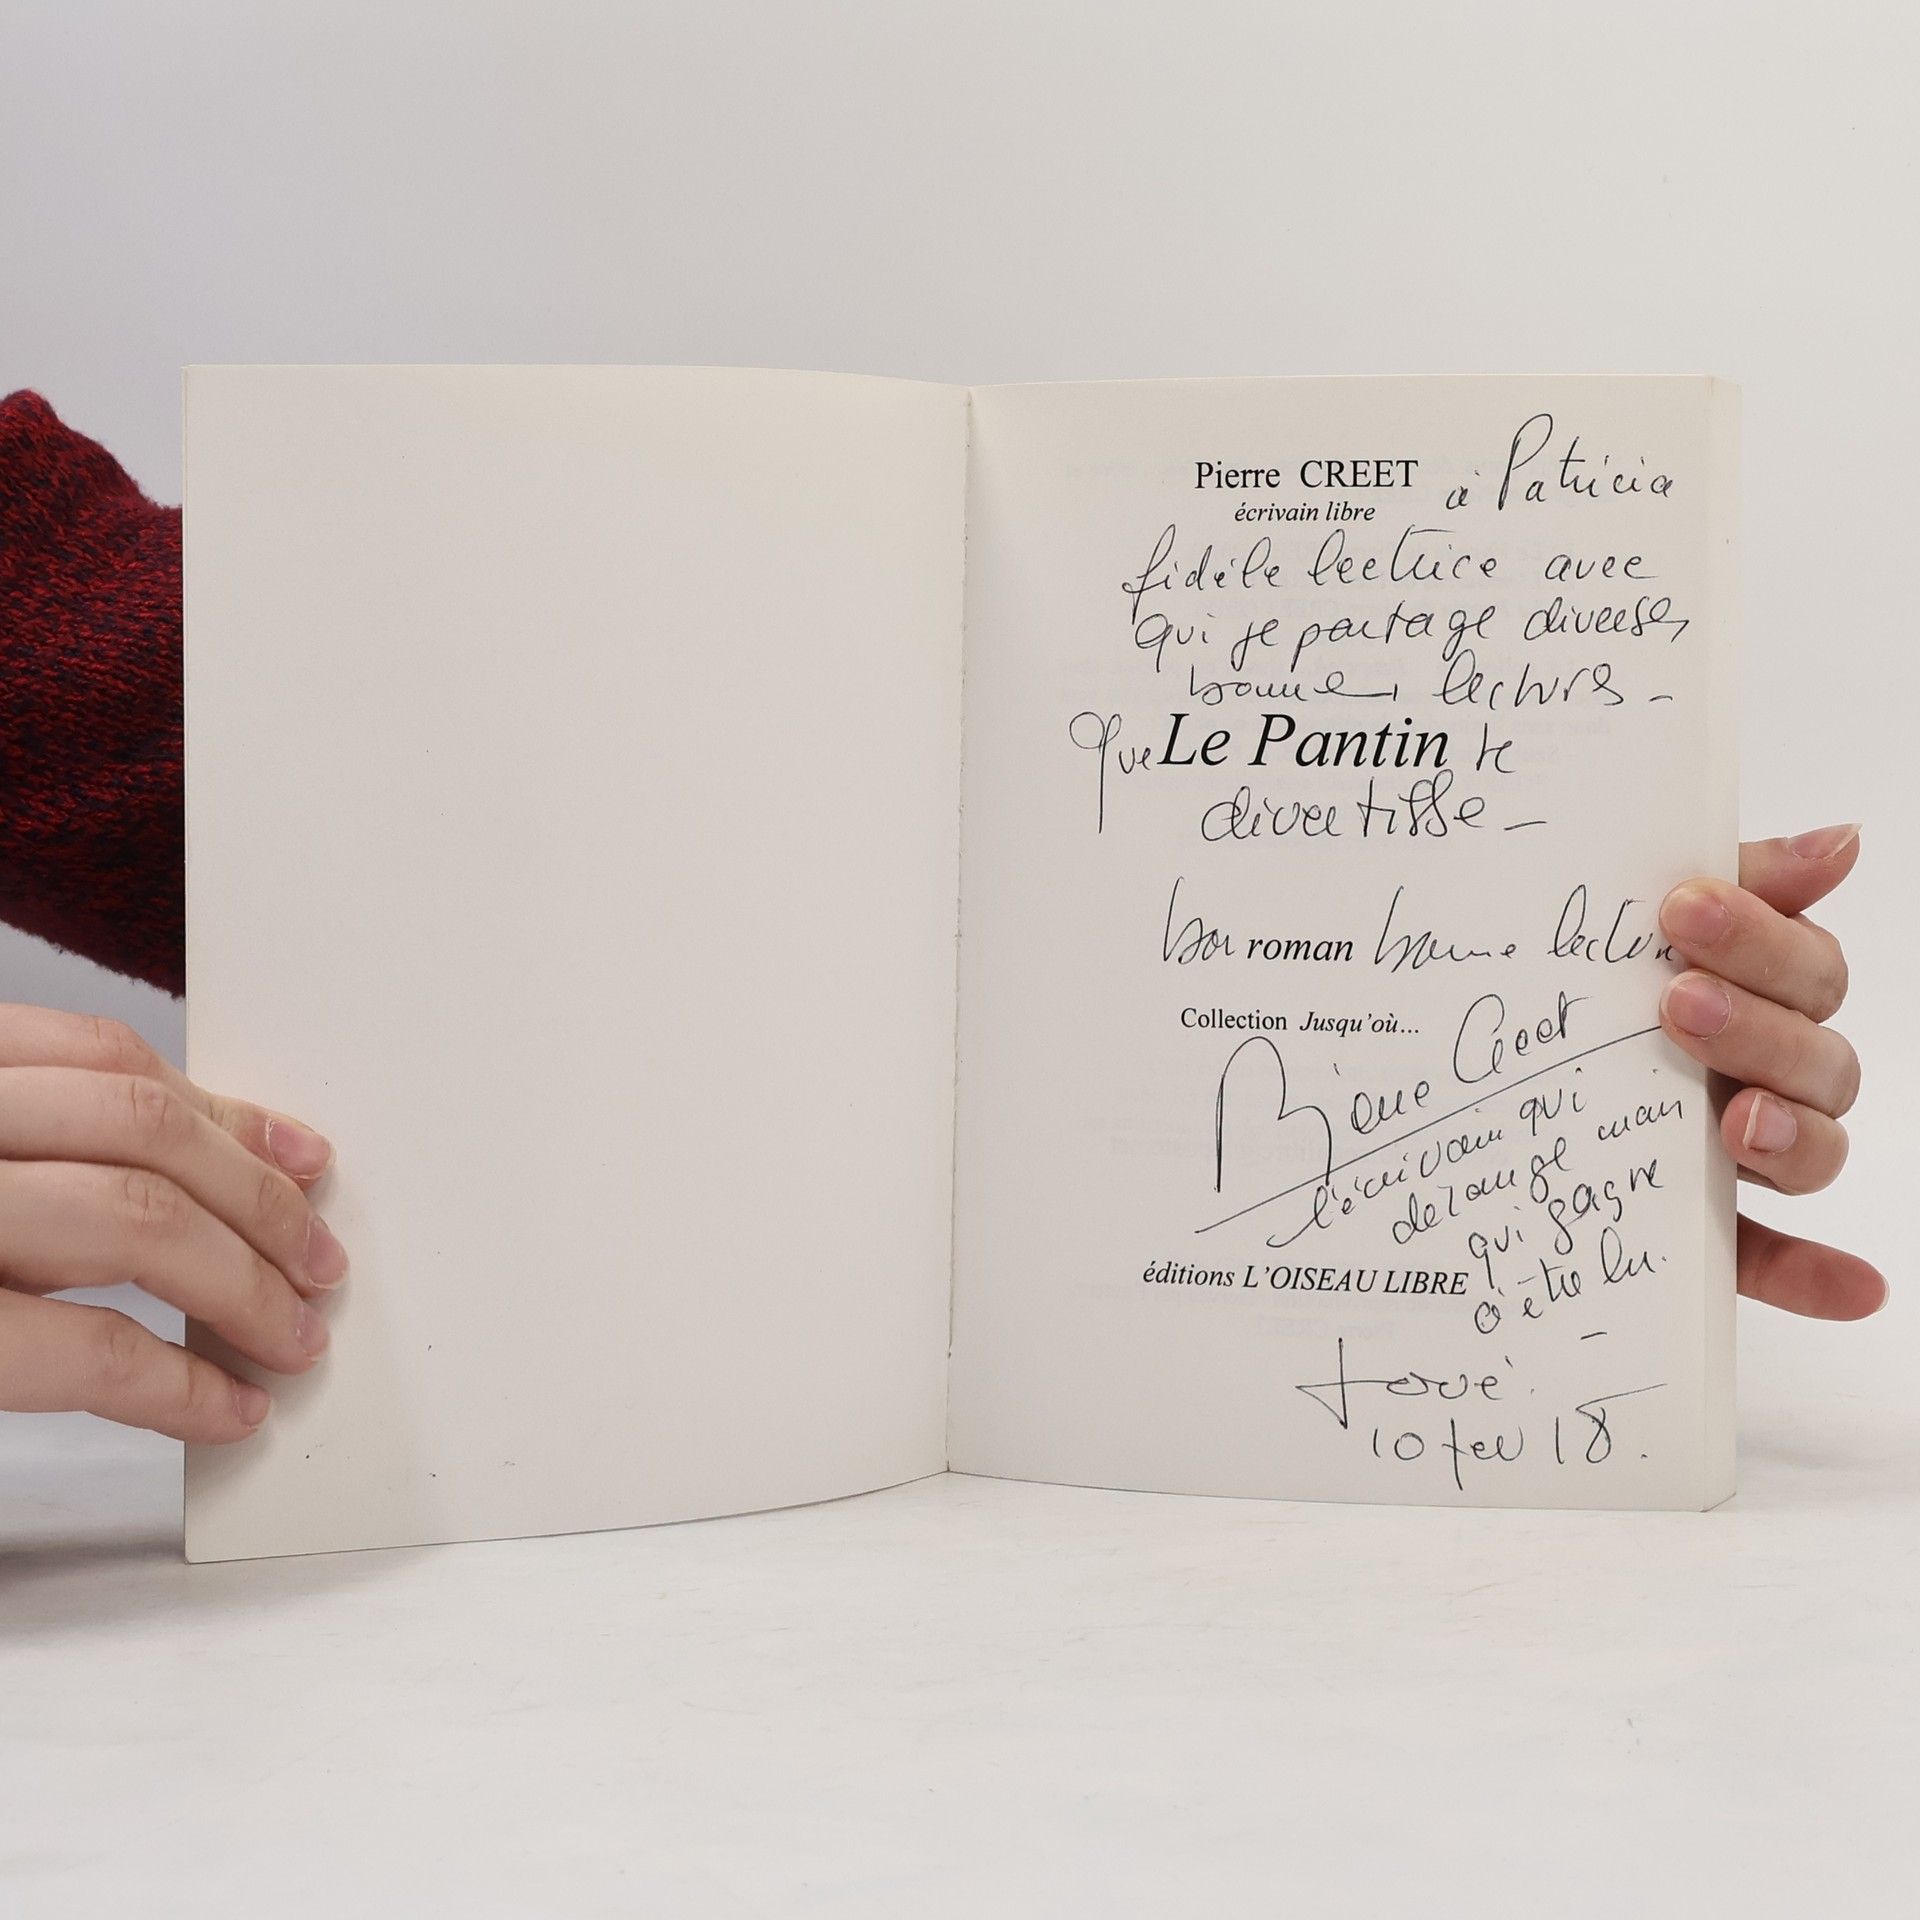 Pierre CREET à Patricia
écrivain libre
fidèle lectrice avec
qui je partage diverses
bonnes lectures -
Que Le Pantin te
divertisse -
bon roman bonne lecture
Collection Jusqu'où...
Pierre Creet
l'écrivain qui
dérange mais
qui gagne
à être lu.
éditions L'OISEAU LIBRE
10 fev 18.